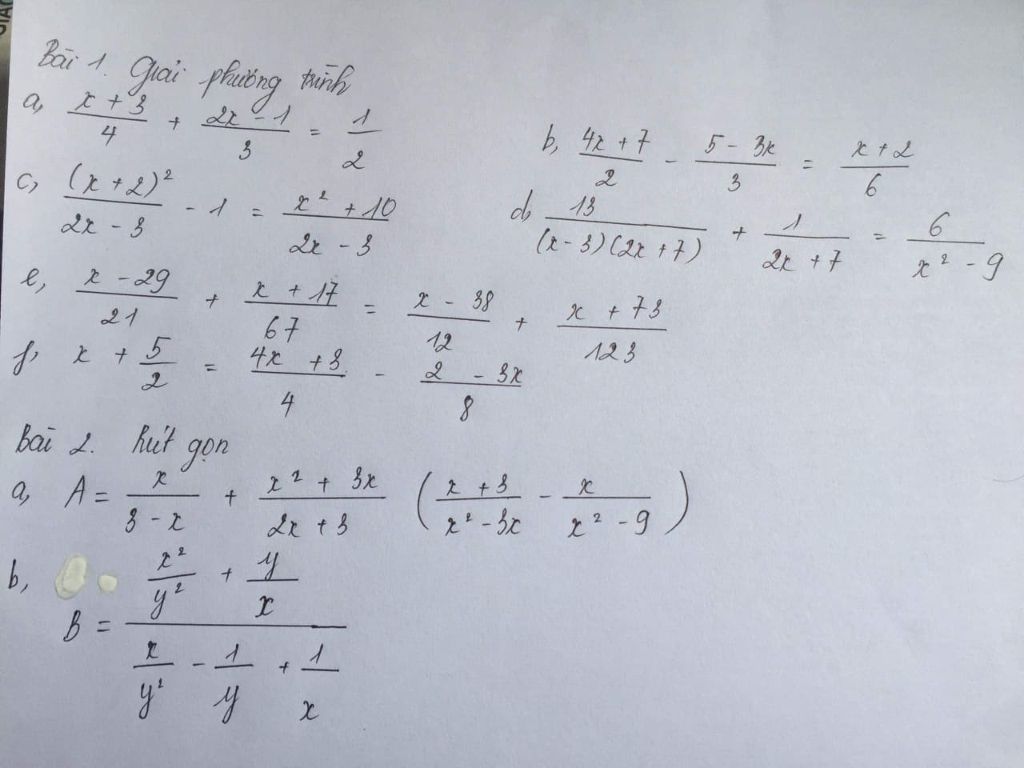 Bài 1. Giải phương trình
a, \frac{x + 3}{4} + \frac{2x - 1}{3} = \frac{1}{2}
b, \frac{4x + 7}{2} - \frac{5 - 3x}{3} = \frac{x + 2}{6}
c, \frac{(x + 2)^2}{2x - 3} - 1 = \frac{x^2 + 10}{2x - 3}
d, \frac{13}{(x - 3)(2x + 7)} + \frac{1}{2x + 7} = \frac{6}{x^2 - 9}
e, \frac{x - 29}{21} + \frac{x + 17}{67} = \frac{x - 38}{12} + \frac{x + 73}{123}
f, x + \frac{5}{2} = \frac{4x + 3}{4} - \frac{2 - 3x}{8}
Bài 2. Rút gọn
a, A = \frac{x}{3 - x} + \frac{x^2 + 3x}{2x + 3} \left( \frac{x + 3}{x^2 - 3x} - \frac{x}{x^2 - 9} \right)
b, B = \frac{\frac{x^2}{y^2} + \frac{y}{x}}{\frac{x}{y^2} - \frac{1}{y} + \frac{1}{x}}